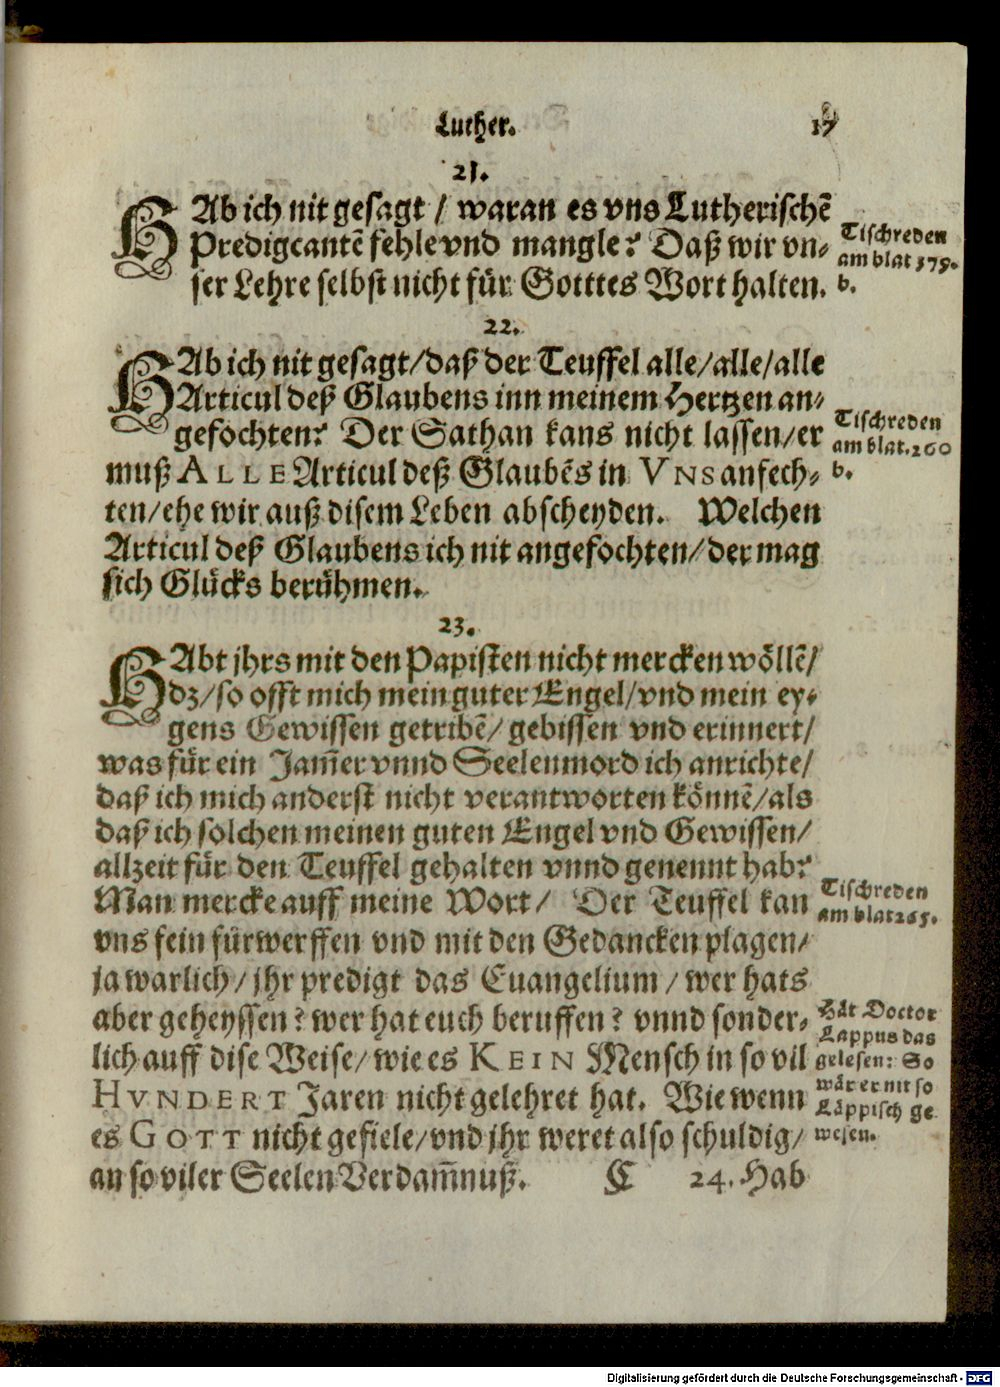 Luther. 17
21.
HAb ich nit gesagt / waran es vns Lutherischẽ
Predigcantẽ fehle vnd mangle? Daß wir vn-
ser Lehre selbst nicht für Gotttes Wort halten.
Tischreden
am blat 575.
b.
22.
HAb ich nit gesagt/daß der Teuffel alle/alle/alle
Articul deß Glaubens inn meinem Hertzen an-
gefochten? Der Sathan kans nicht lassen/er
muß ALLE Articul deß Glaubẽs in VNS anfech-
ten/ehe wir auß disem Leben abscheyden. Welchen
Articul deß Glaubens ich nit angefochten/der mag
sich Glücks berühmen.
Tischreden
am blat.260
b.
23.
HAbt jhrs mit den Papisten nicht mercken wöllẽ/
dz/so offt mich mein guter Engel/vnd mein ey-
gens Gewissen getribẽ/gebissen vnd erinnert/
was für ein Jam̃er vnnd Seelenmord ich anrichte/
daß ich mich anderst nicht verantworten könnẽ/als
daß ich solchen meinen guten Engel vnd Gewissen/
allzeit für den Teuffel gehalten vnnd genennt hab?
Man mercke auff meine Wort/ Der Teuffel kan
vns fein fürwerffen vnd mit den Gedancken plagen/
ja warlich/jhr predigt das Euangelium/wer hats
aber geheyssen? wer hat euch beruffen? vnnd sonder-
lich auff dise Weise/wie es KEIN Mensch in so vil
HVNDERT Jaren nicht gelehret hat. Wie wenn
es GOTT nicht gefiele/vnd jhr weret also schuldig/
an so viler Seelen Verdam̃nuß.
Tischreden
am blat 265.
Hät Doctor
Lappus das
gelesen: So
wär er nit so
Läppisch ge
wesen.
C 24. Hab
Digitalisierung gefördert durch die Deutsche Forschungsgemeinschaft - DFG